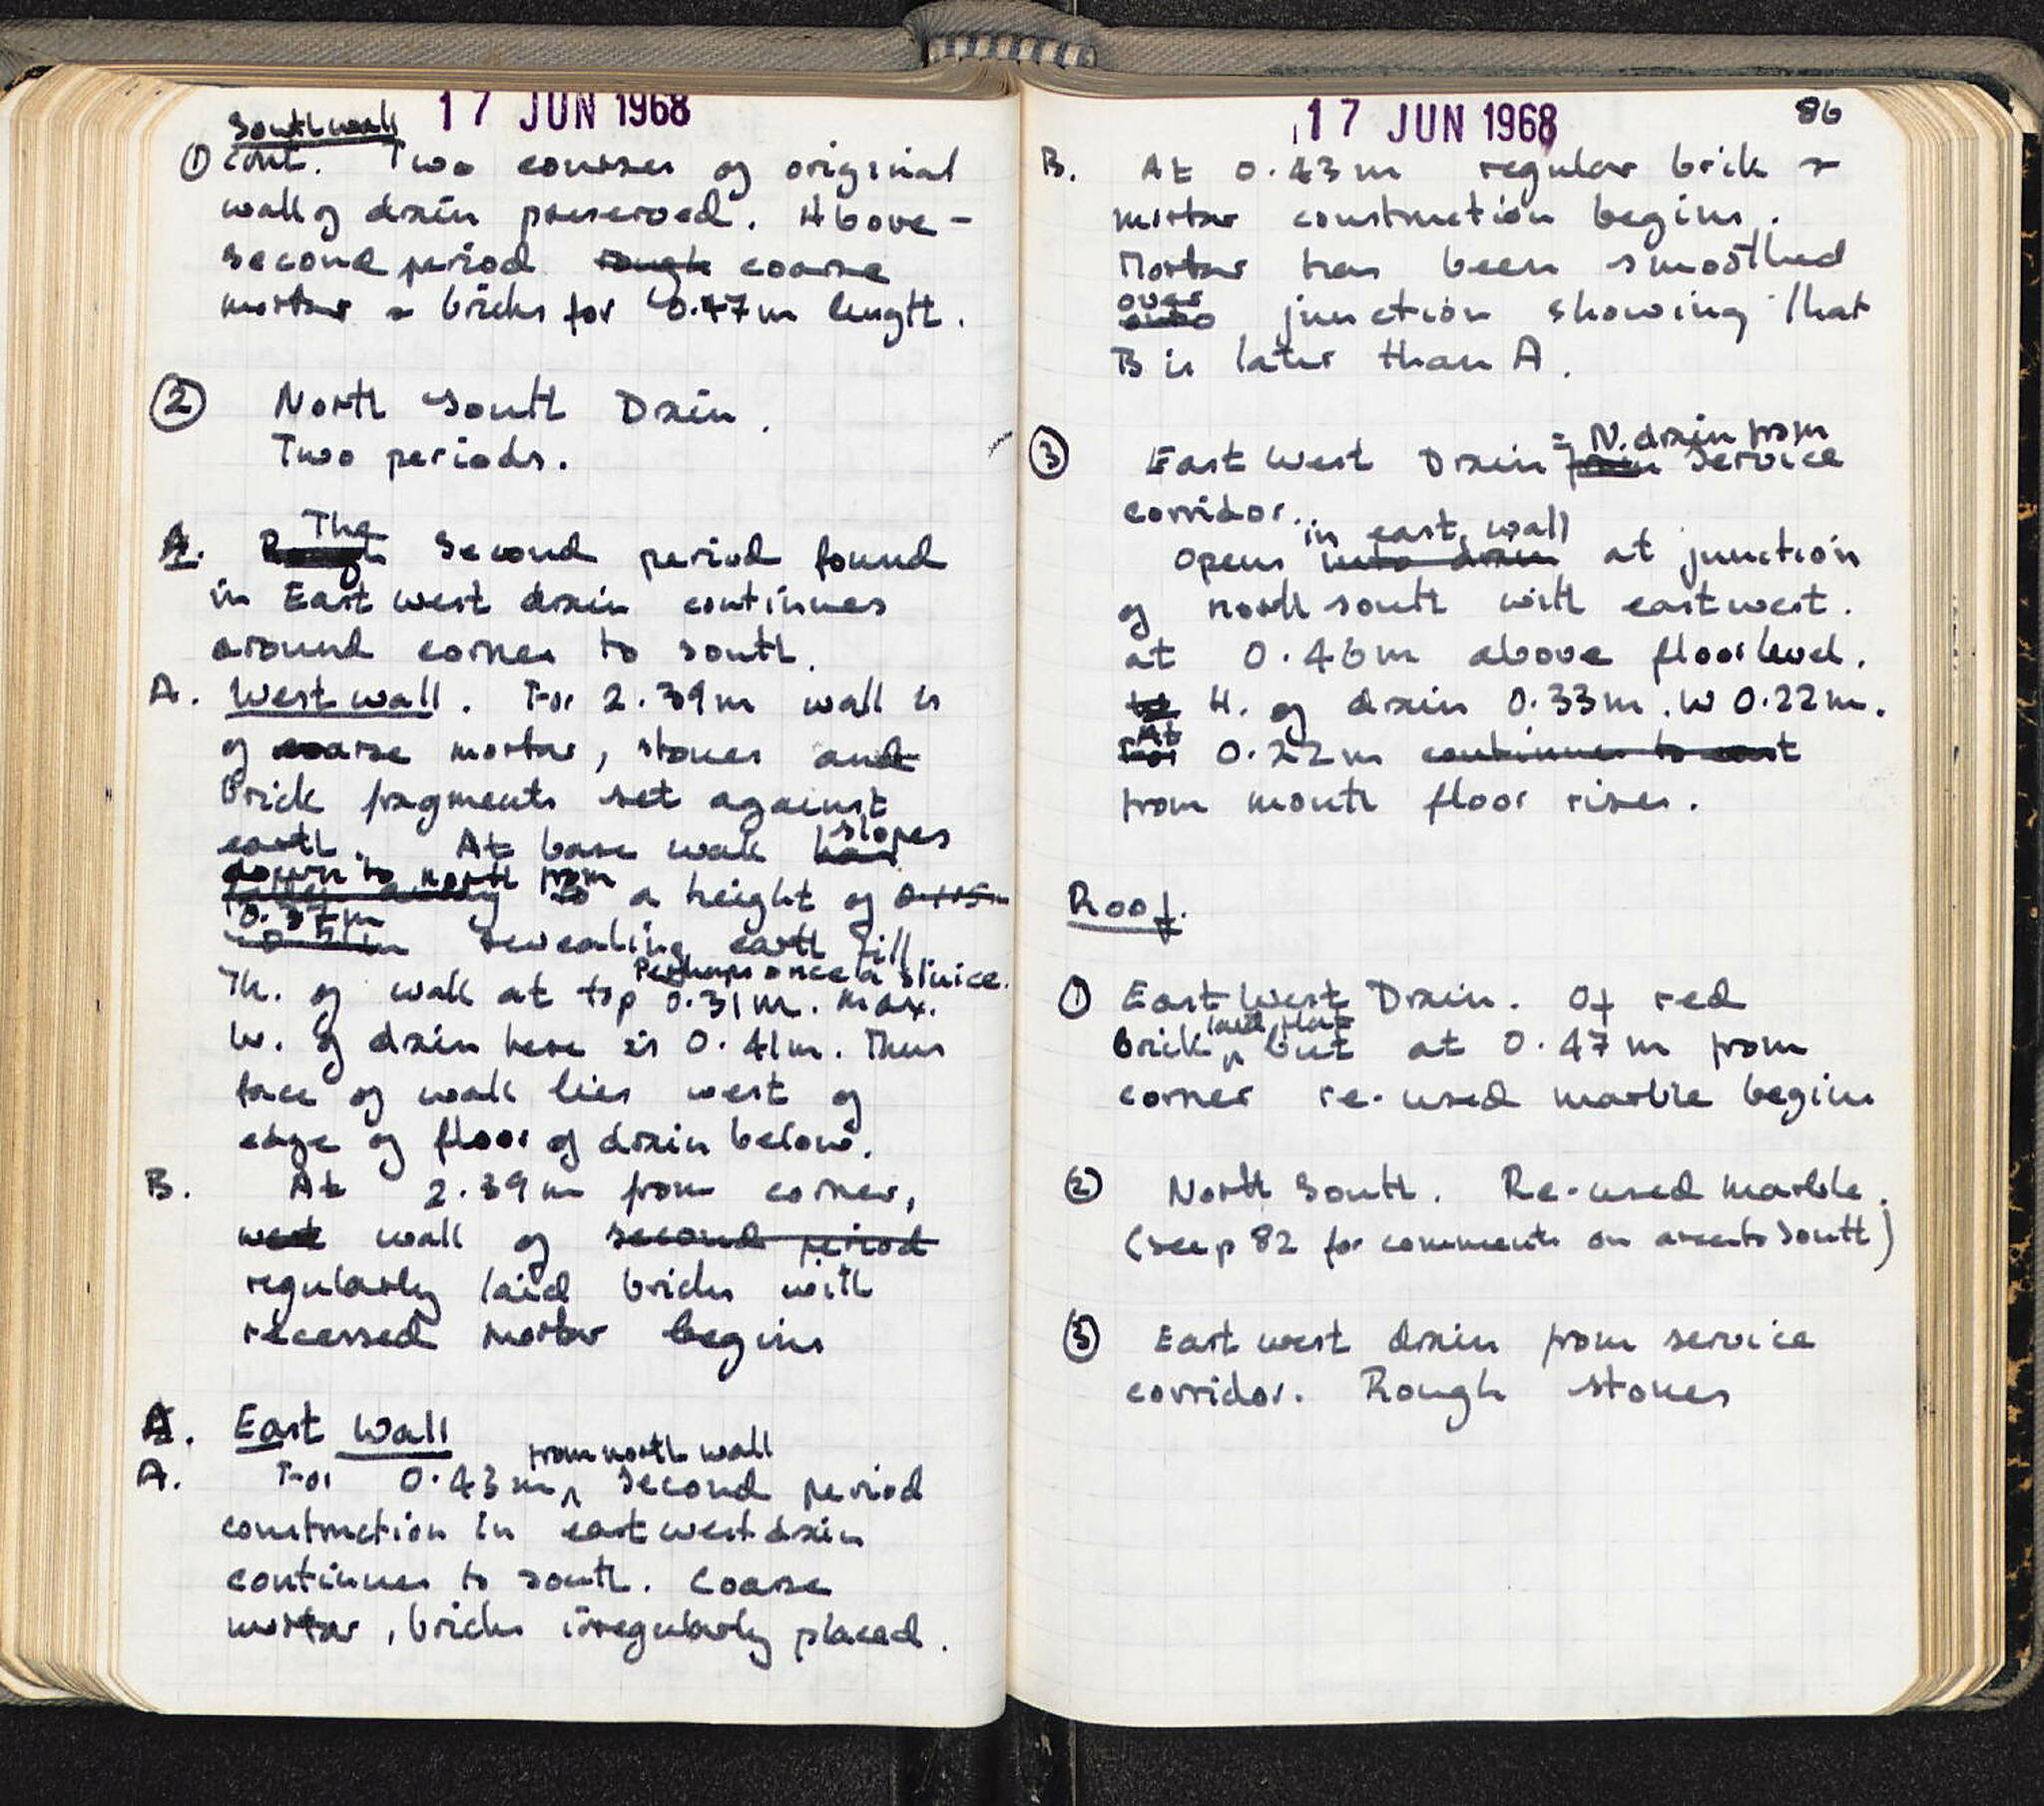 17 JUN 1968
South wall
① cont. Two courses of original
wall of drain preserved. Above -
second period rough coarse
mortar & bricks for 0.47m length.
② North South Drain.
Two periods.
A. The Second period found
in East west drain continues
around corner to south.
A. West wall. For 2.39m wall is
of coarse mortar, stones and
brick fragments set against
earth. At base wall slopes
down to north from
to a height of
0.37m
revealing earth fill
Perhaps once a sluice.
Th. of wall at top 0.31m. max.
W. of drain here is 0.41m. Thus
face of wall lies west of
edge of floor of drain below.
B. At 2.39m from corner,
west wall of second period
regularly laid bricks with
recessed mortar begins
A. East Wall
from north wall
A. For 0.43m, second period
construction in east west drain
continues to south. Coarse
mortar, bricks irregularly placed.
17 JUN 1968
86
B. At 0.43m regular brick &
mortar construction begins.
Mortar has been smoothed
over
junction showing that
B is later than A.
= N. drain from
③ East West Drain from service
corridor.
in east wall
Opens into drain at junction
of north south with east west.
at 0.46m above floor level.
H. of drain 0.33m. W 0.22m.
At
For 0.22m continues to east
from mouth floor rises.
Roof.
① East West Drain. Of red
laid flat
brick ^ but at 0.47m from
corner re-used marble begins
② North South. Re-used marble.
(see p 82 for comments on area to south)
③ East west drain from service
corridor. Rough stones